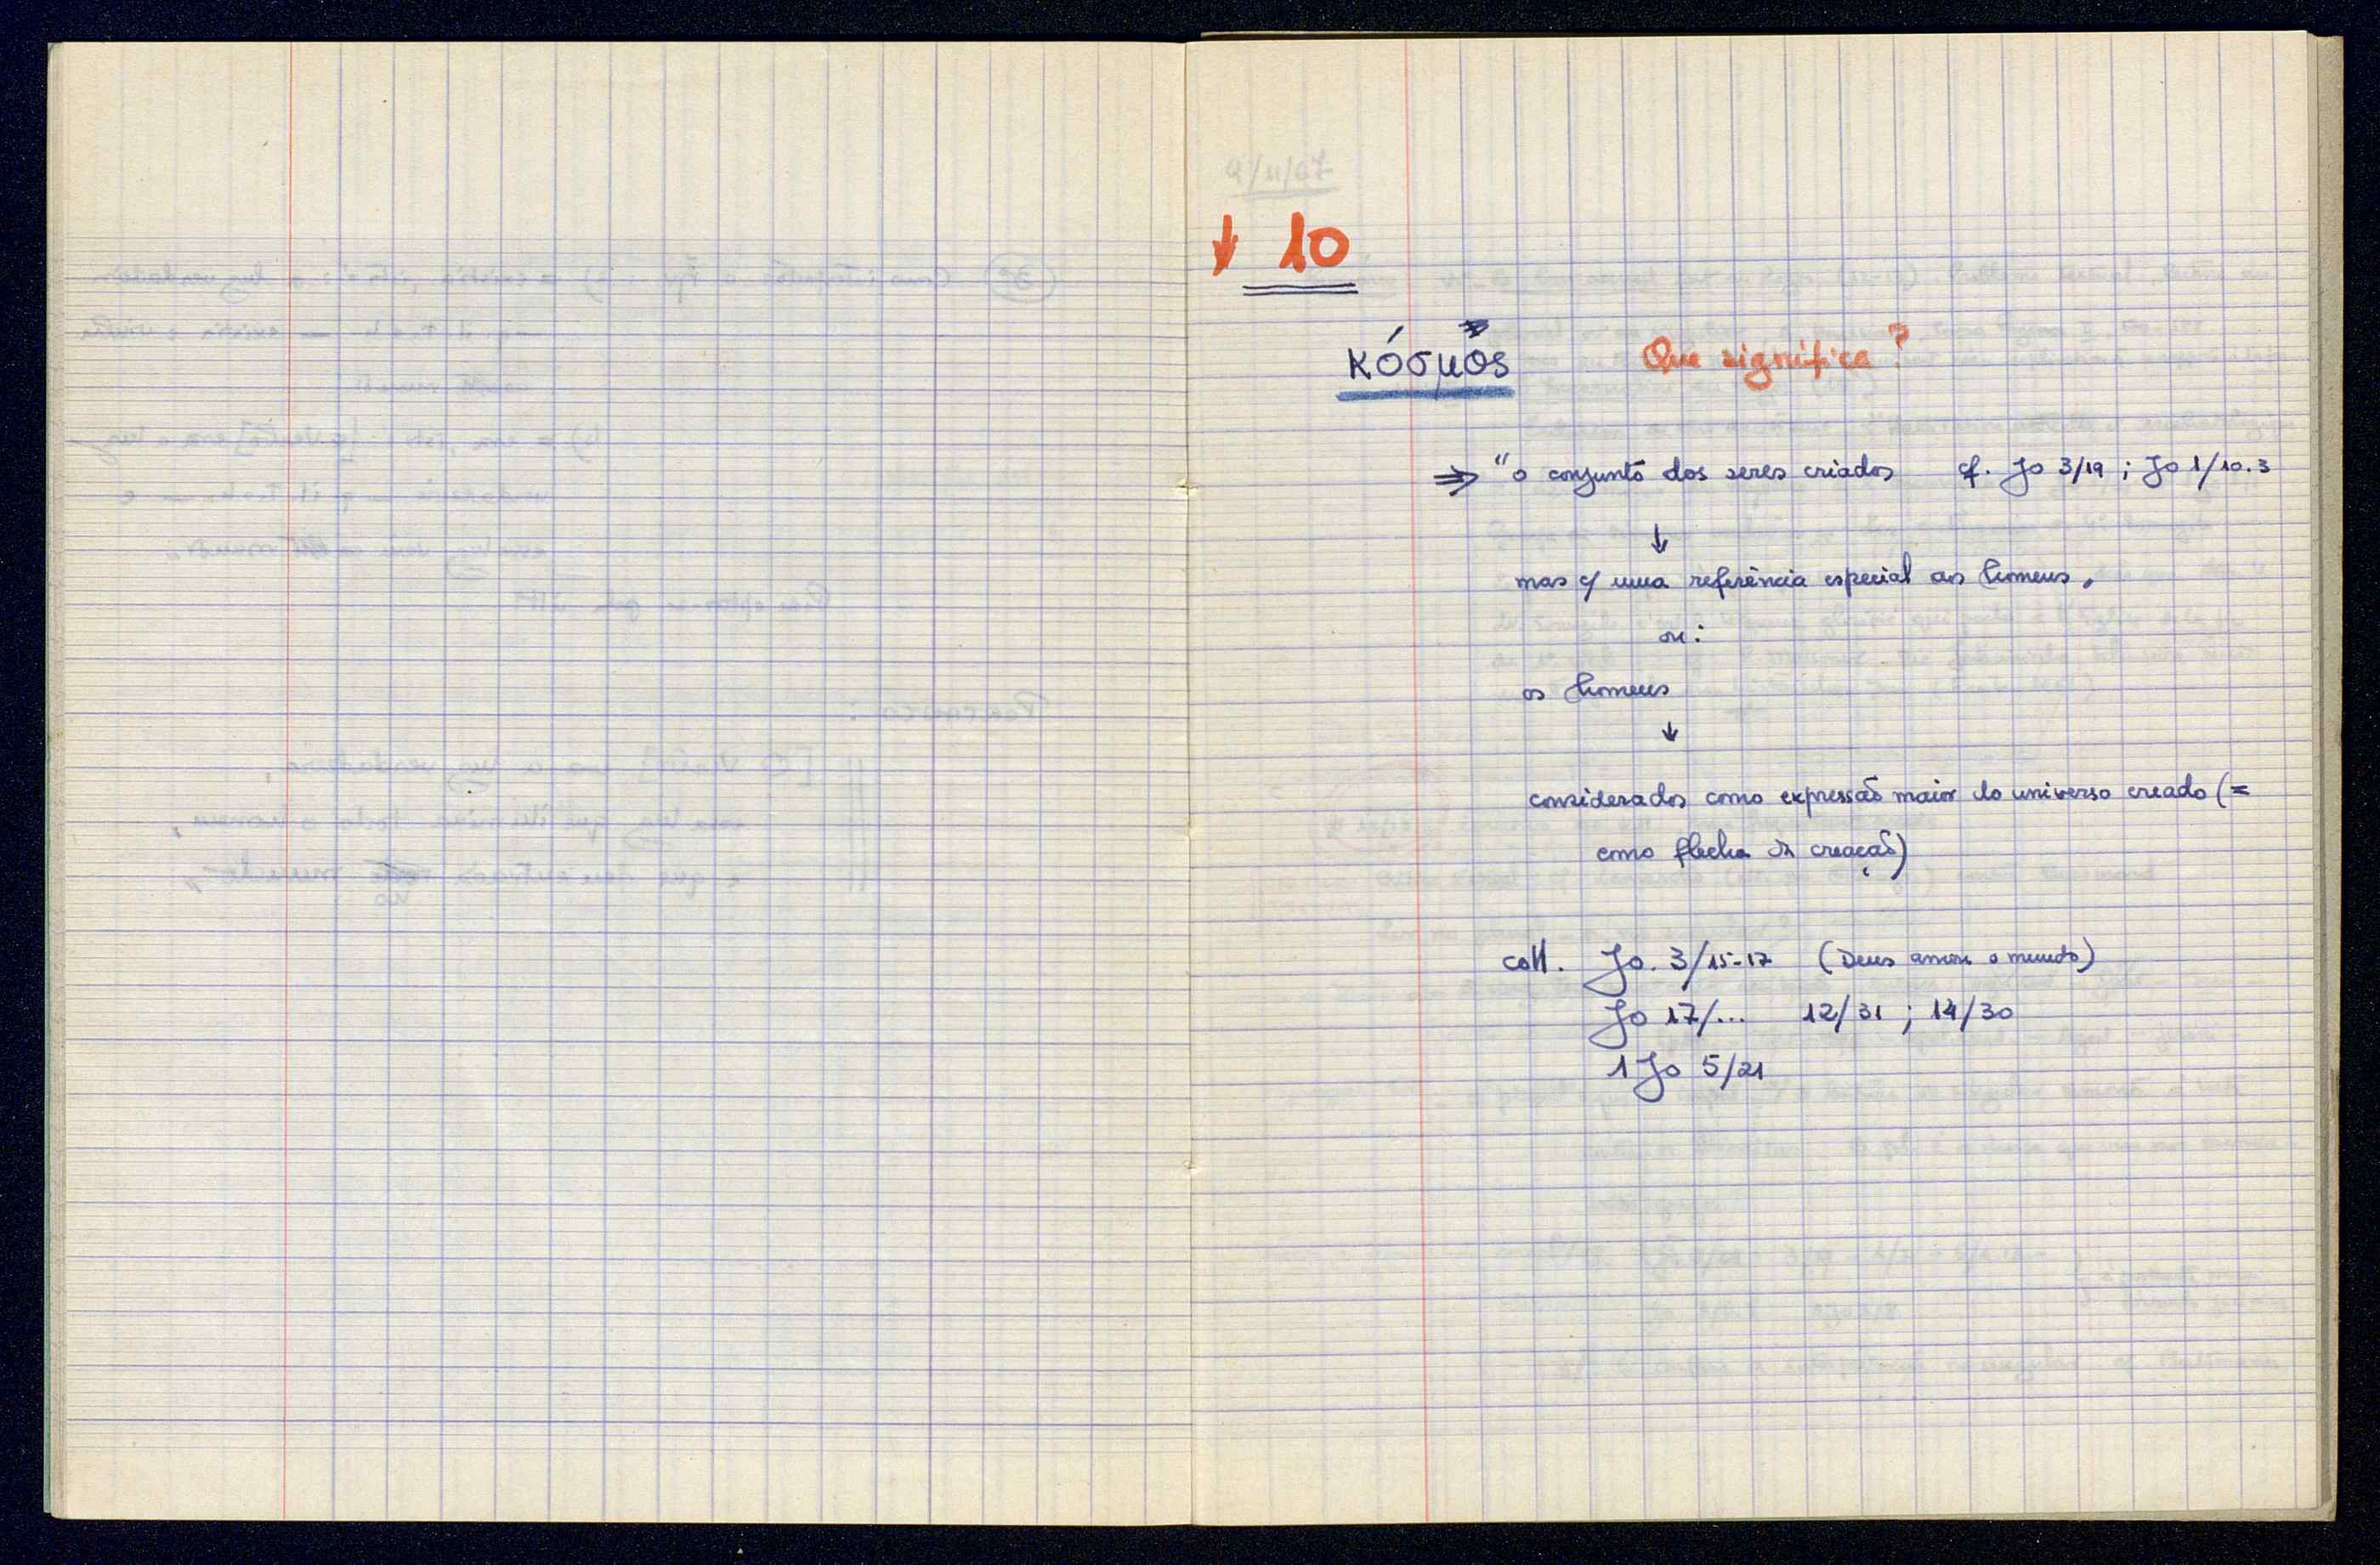 ↓ 10
κόσμος Que significa?
⇒ "o conjunto dos seres criados cf. Jo 3/19 ; Jo 1/10.3
↓
mas c/ uma referência especial aos homens.
ou:
os homens
↓
considerados como expressão maior do universo creado (=
como flecha da creação)
coll. Jo. 3/15-17 (Deus amou o mundo)
Jo 17/... 12/31 ; 14/30
1 Jo 5/21